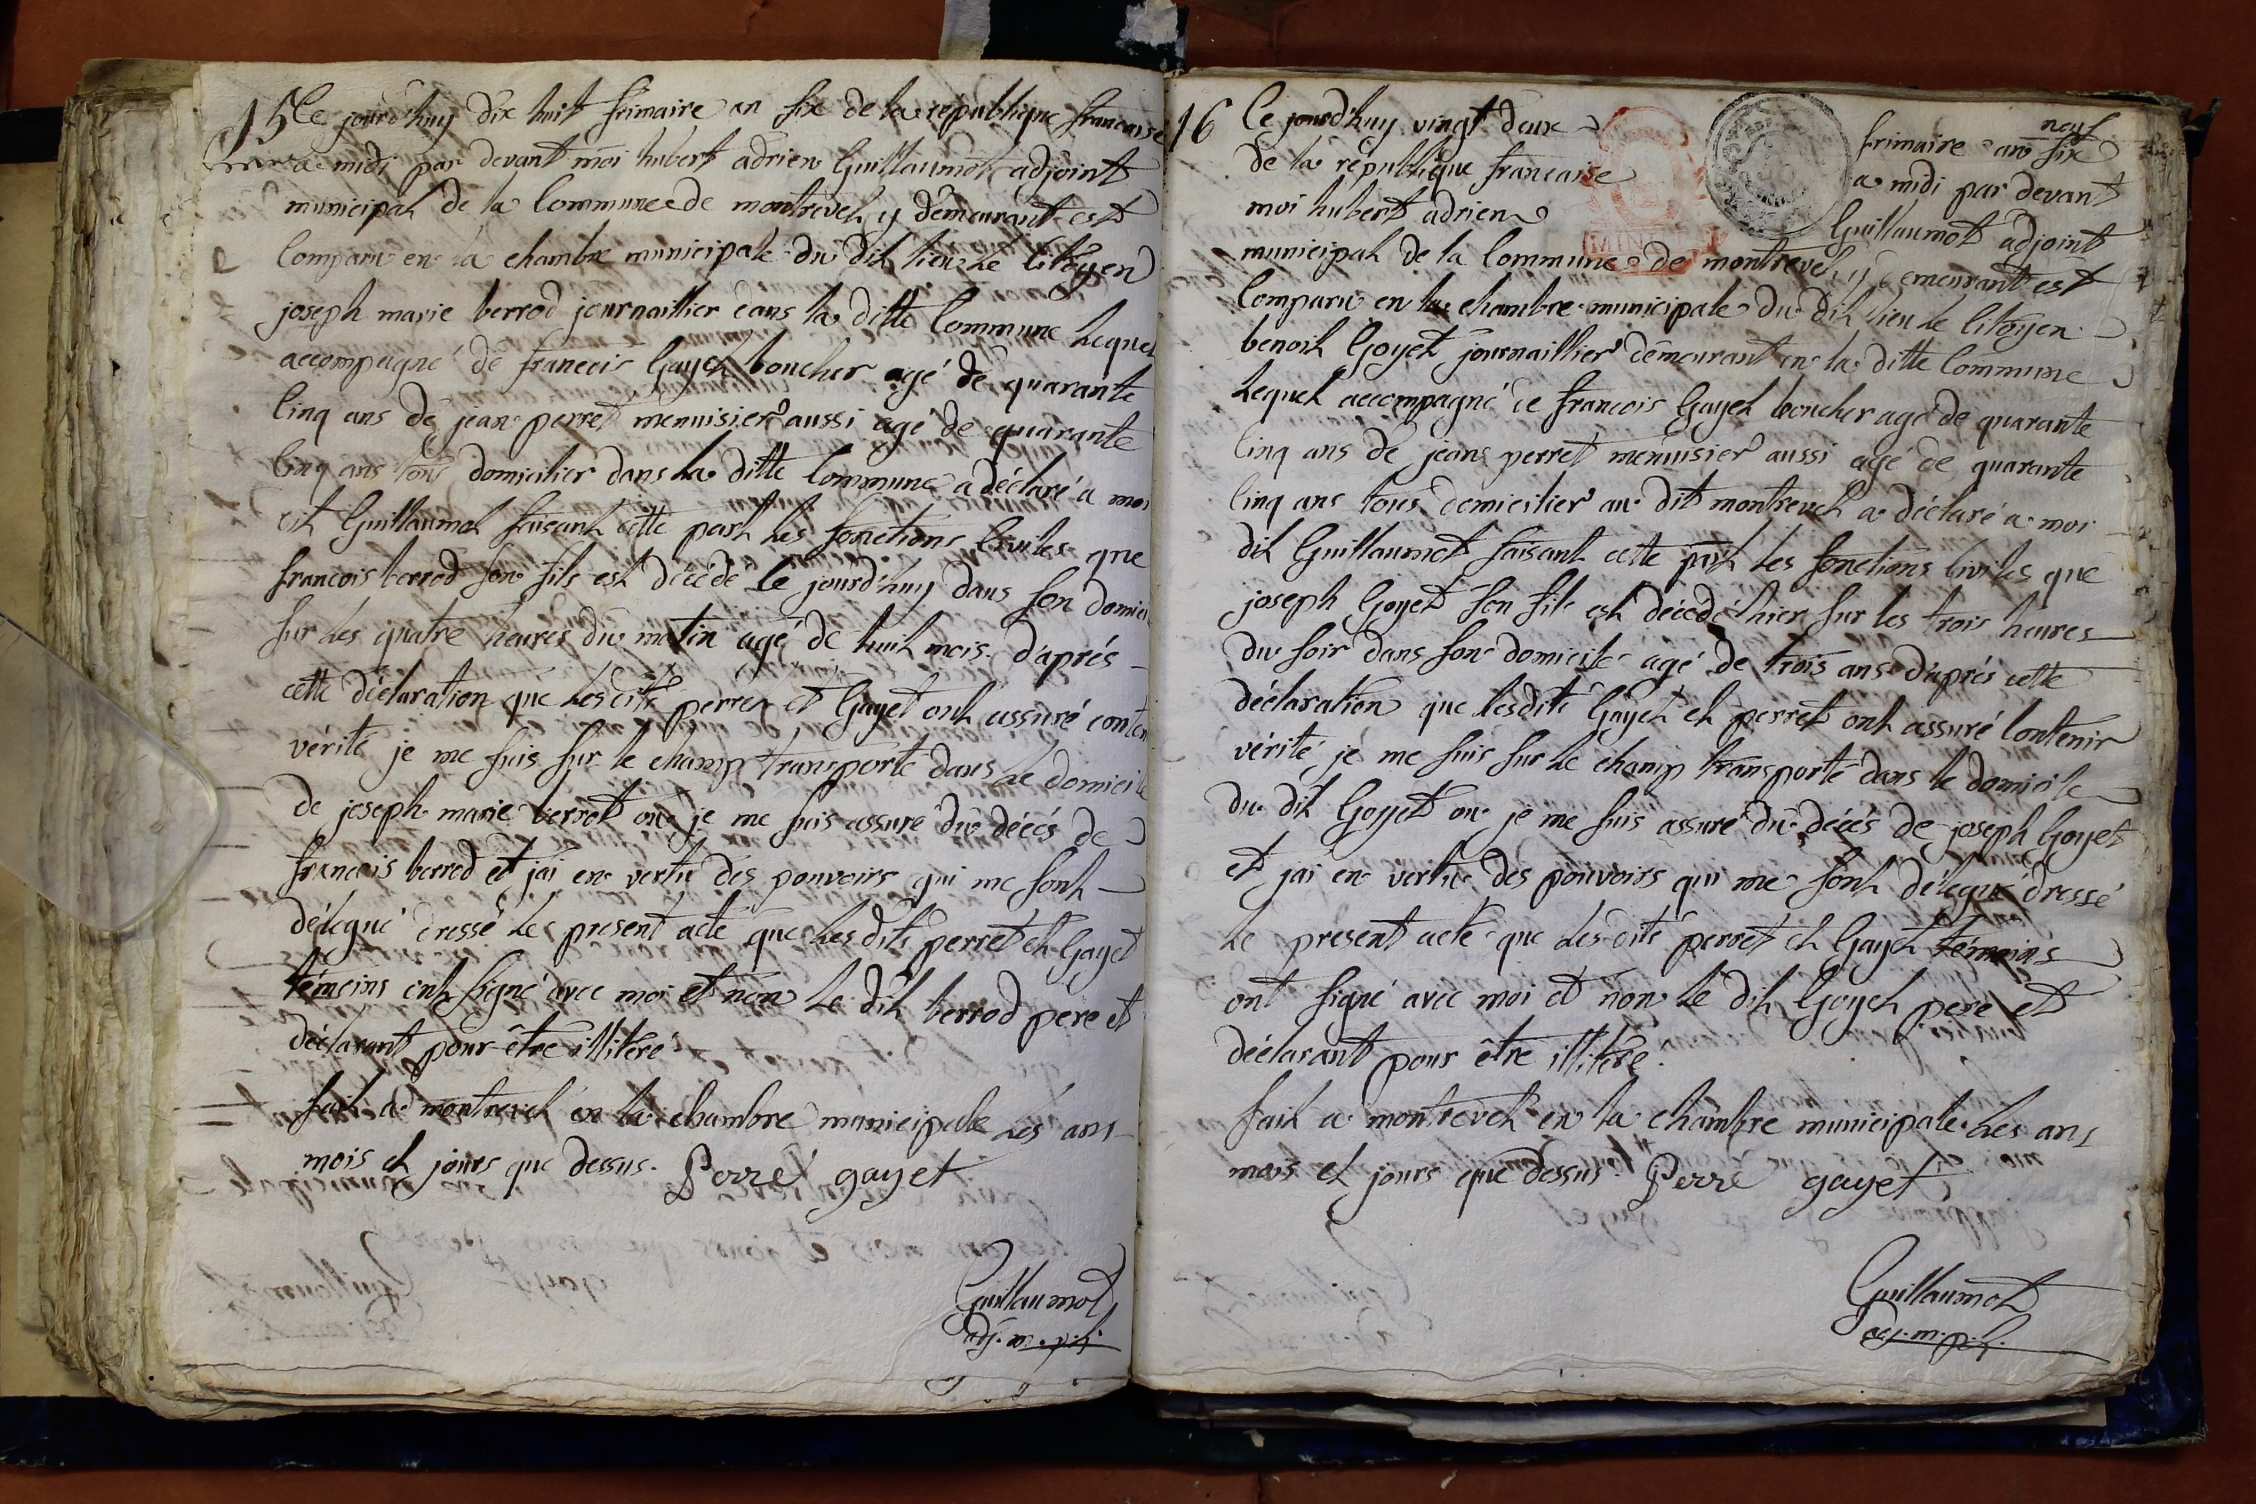 15 Ce jourd'huy dix huit frimaire an six de la republique francaise
a midi par devant moi hubert adrien Guillaumot adjoint
municipal de la Commune de montrevel y demeurant est
Comparu en la chambre municipale du dit lieu le Citoyen
joseph marie berrod journaillier dans la ditte Commune lequel
accompagné de francois Gayet boucher agé de quarante
Cinq ans de jean perret menuisier aussi agé de quarante
Cinq ans tous domicilier dans la ditte Commune a déclaré a moi
dit Guillaumot faisant cette part les fonctions Civiles que
francois berrod son fils est décédé le jourd'huy dans son domici
sur les quatre heures du matin agé de huit mois. d'aprés
cette déclaration que lesdits perret et Gayet ont assuré conten
vérité je me suis sur le champ transporté dans le domicile
de joseph marie berrot ou je me suis assuré du décés de
francois berrod et jai en vertu des pouvoirs qui me sont
délegué dressé le present acte que les dits perret et Gayet
témoins ont signé avec moi et non le dit berrod pere et
déclarant pour être illitéré
fait a montrevel en la chambre municipalle les ans
mois et jours que dessus. Perré gayet
Guillaumot
adj. m. p. l.
16 Ce jourd'huy vingt deux frimaire an six neuf
de la république francaise a midi par devant
moi hubert adrien Guillaumot adjoint
municipal de la Commune de montrevel y demeurant est
Comparu en la chambre municipale du dit lieu le Citoyen
benoit Goyet journaillier demeurant en la ditte Commune
lequel accompagné de francois Gayet boucher agé de quarante
Cinq ans de jean perret menuisier aussi agé de quarante
Cinq ans tous domicilier au dit montrevel a déclaré a moi
dit Guillaumot faisant cette part les fonctions Civiles que
joseph Goyet son fils est décedé hier sur les trois heures
du soir dans son domicile agé de trois ans d'aprés cette
déclaration que lesdits Gayet et perret ont assuré Contenir
vérité je me suis sur le champ transporté dans le domicile
du dit Goyet ou je me suis assuré du décés de joseph Goyet
et jai en vertu des pouvoirs qui me sont délegué dressé
le present acte que les dits perret et Gayet témoins
ont signé avec moi et non le dit Goyet pere et
déclarant pour être illitéré.
fait a montrevel en la chambre municipale les ans
mois et jours que dessus. Perré gayet
Guillaumot
adj. m. p. l.